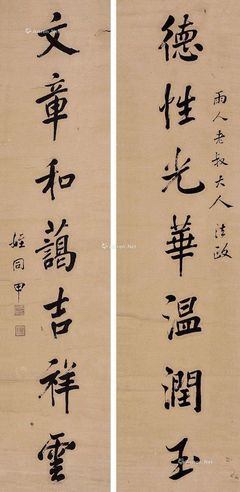 德性光華温潤玉
雨人老叔大人 法政
文章和藹吉祥雲
姪同甲